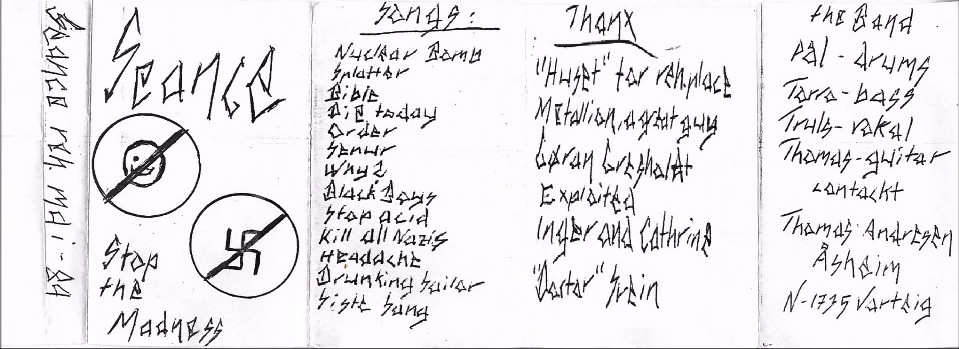 Seance reh. mai - 89
Seance
Stop
the
Madness
Songs:
Nuclear Bomb
Splatter
Bible
Die today
Order
Senur
Why?
Black Boys
Stop acid
Kill all Nazis
Headache
Drunking Sailor
Siste Sang
Thanx
"Huset" for reh.place
Metallion, a great guy
Gøran Gresholdt
Exploited
Inger and Cathrine
"Doctor" Svein
the Band
Pål - drums
Torro - bass
Truls - vokal
Thomas - guitar
contackt
Thomas Andresen
Åsheim
N-1735 Varteig